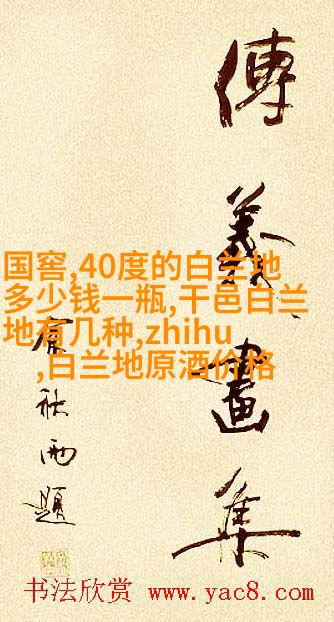 傅義畫集
余秋雨題
国窖,40度的白兰地
多少钱一瓶,干邑白兰
地有几种,zhihu
,白兰地原酒价格
书法欣赏 www.yac8.com